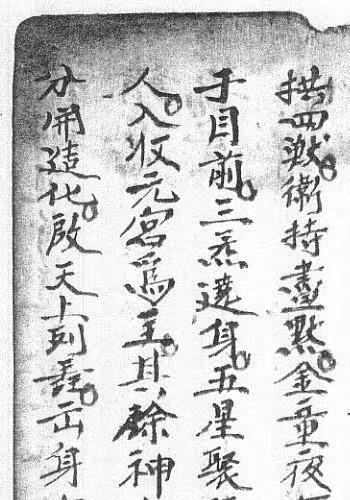 拱四戟衛持盡㸃金童夜
于目前三炁遶身五星聚
人入收元宮爲主其餘神
分開造化啟天上列
身